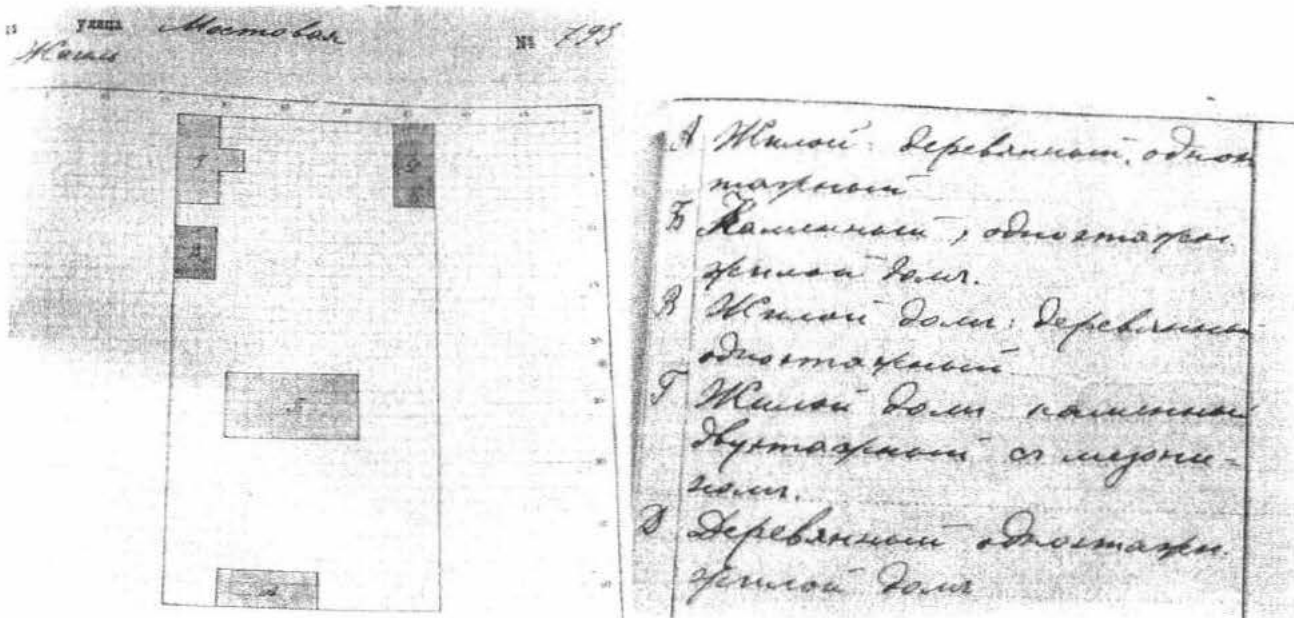 улица Мостовая № 193
А Жилой: деревянный, одноэ
тажный
Б Каменный, одноэтажн.
жилой домъ.
В Жилой домъ: деревянный
одноэтажный
Г Жилой домъ каменный
двухтажный съ мезони-
номъ.
Д Деревянный одноэтажн.
жилой домъ
Г
Д
В
Б
А